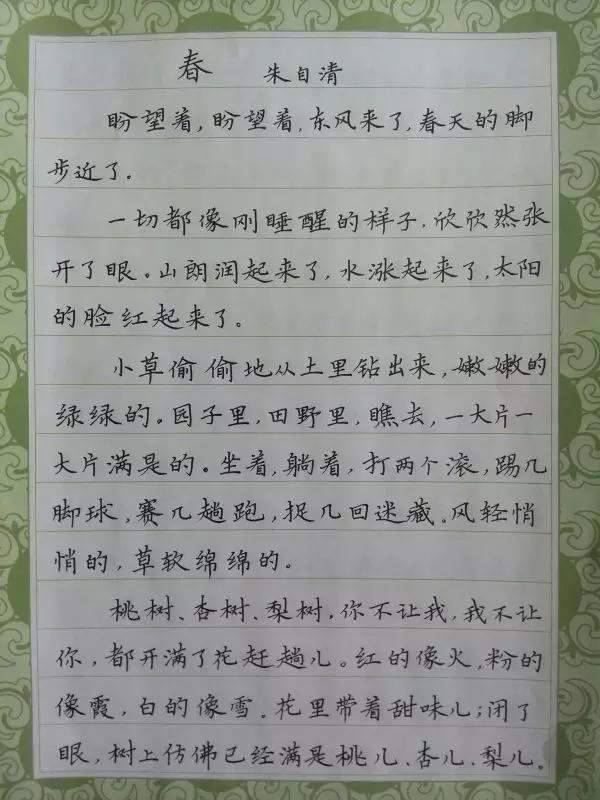 春 朱自清
盼望着,盼望着,东风来了,春天的脚
步近了。
一切都像刚睡醒的样子,欣欣然张
开了眼。山朗润起来了,水涨起来了,太阳
的脸红起来了。
小草偷偷地从土里钻出来,嫩嫩的
绿绿的。园子里,田野里,瞧去,一大片一
大片满是的。坐着,躺着,打两个滚,踢几
脚球,赛几趟跑,捉几回迷藏。风轻悄
悄的,草软绵绵的。
桃树、杏树、梨树,你不让我,我不让
你,都开满了花赶趟儿。红的像火,粉的
像霞,白的像雪。花里带着甜味儿;闭了
眼,树上仿佛已经满是桃儿、杏儿、梨儿。